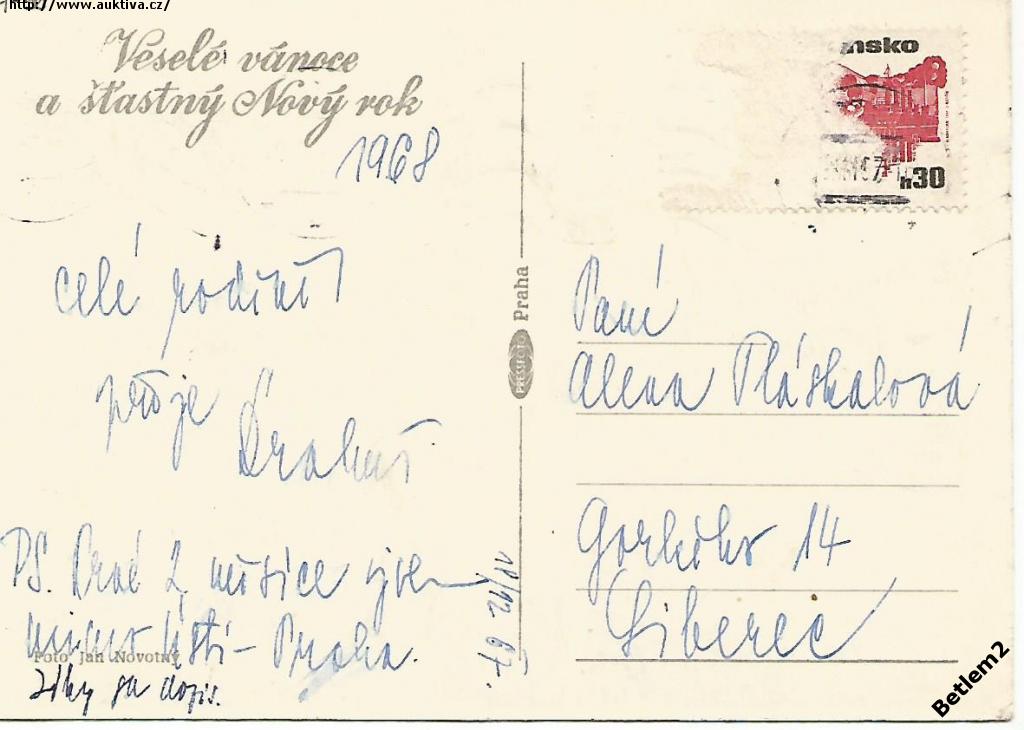 http://www.auktiva.cz/
Veselé vánoce
a šťastný Nový rok
1968
celé rodině
přeje
Drahuš
PS. Prvé 2 měsíce jsem
mimo Ústí - Praha.
Foto Jan Novotný
Díky za dopis.
18/12 67.
PRESSFOTO Praha
nsko
h30
Paní
Alena Pláskalová
Gorkého 14
Liberec
Betlem2